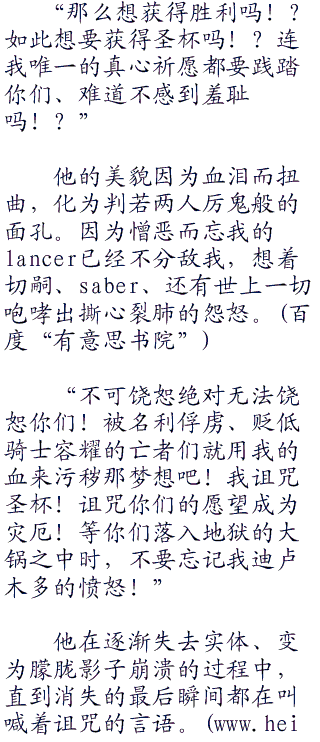 “那么想获得胜利吗！？
如此想要获得圣杯吗！？连
我唯一的真心祈愿都要践踏
你们、难道不感到羞耻
吗！？”
他的美貌因为血泪而扭
曲，化为判若两人厉鬼般的
面孔。因为憎恶而忘我的
lancer已经不分敌我，想着
切嗣、saber、还有世上一切
咆哮出撕心裂肺的怨怒。(百
度“有意思书院”)
“不可饶恕绝对无法饶
恕你们！被名利俘虏、贬低
骑士容耀的亡者们就用我的
血来污秽那梦想吧！我诅咒
圣杯！诅咒你们的愿望成为
灾厄！等你们落入地狱的大
锅之中时，不要忘记我迪卢
木多的愤怒！”
他在逐渐失去实体、变
为朦胧影子崩溃的过程中，
直到消失的最后瞬间都在叫
喊着诅咒的言语。(www.hei